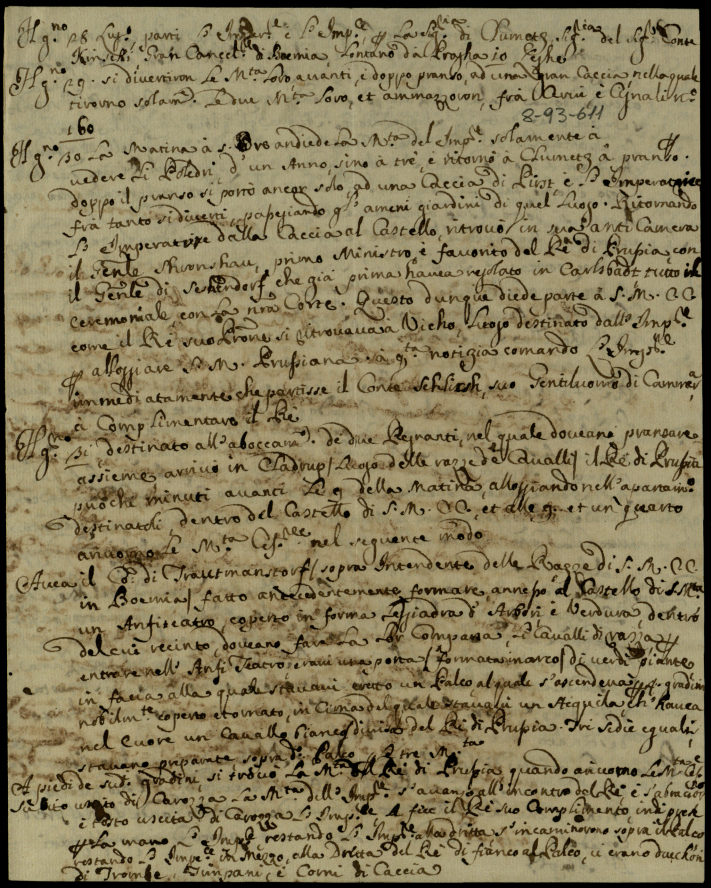 Il g.no 28 Lug.o parti l'Imper.e e l'Imp.e p La di Clumetz del Sig.r Conte
Kinschi Gran Cancell.re di Boemia, Lontano da Pragha 10 Leghe
Il g.no 29. si divertiron Le M.ta Loro avanti, e doppo pranso, ad una gran Caccia nella quale
tirorno solam.e Le due M.ta Loro, et ammazzoron, frà Cervi e Cignali n.o
160
8-93-611
Il g.no 30 La Matina à 5. Ore andiede La M.ta del Imp.e solamente à
vedere Li Poledri, d'un Anno, sino à trè, e ritornò à Clumetz à pranso.
doppo il pranso si portò ancor solo, ad una Caccia di e l'Imperatrice
frà tanto si divertì, passegiando q.li ameni giardini di quel Luogo. Ritornando
l'Imperatore dalla Caccia al Castello, ritrovò in sua anti Camera
il Gen.le primo Ministro, e favorito del Rè di Prussia, con
il Gen.le di Sekendorf che già prima havea regolato in Carlsbadt tutto il
ceremoniale, con La n̄ra Corte. Questo dunque diede parte à S. M. C. C.
come il Rè suo P̄rone si ritrovava à Vicho, Luogo destinato dall'Imp.e
p alloggiare S. M. Prussiana. sà q.ta notizia comandò l'Imp.e
immediatamente che partisse il Conte suo Gentiluomo di Camera,
à Complimentare il Rè
Il g.no 31 destinato all'aboccam.o de due Regnanti, nel quale doveano pransare
assieme, arrivò in Cladrup / Luogo delle razze de Cavalli / il Rè di Prussia
puochi minuti avanti Le 9 della Matina, alloggiando nell'apartam.o
destinatoli dentro del Castello di S. M. C. C., et alle 9. et un quarto
arivorno Le M.ta Ces.ree nel seguente modo
Avea il C. di Trautmanstorf / sopra Intendente delle Razze di S. M. C. C.
in Boemia / fatto antecedentemente formare, annesso al Castello di S. M.ta
un Anfiteatro, coperto in forma Legiadra d'Arbori, e Verdura, dentro
del cui recinto, doveano fare La Lor Comparsa, Li Cavalli di razza. p
entrare nell'Anfi Teatro, eravi una porta / formata in arco / di verdi piante
in facia alla quale stavavi eretto un Palco, al quale s'ascendeva p 4. gradini
nobilm.te coperto et ornato, in Cima del quale stavavi un Aequila, ch'havea
nel Cuore un Cavallo Bianco, divisa del Rè di Prussia. Tre Sedie eguali,
stavano preparate sopra d.o Palco p Le tre M.ta
A piedi de sud.i gradini, si trovò La M.ta del Rè di Prussia, quando arivorno Le M.ta Ces.e
subito uscito di Carozza La M.ta dell'Imp.e s'avanzò all'incontro del Rè e s'abraciorno
e tosto uscita di Carozza l'Imp.e Le fece il Rè suo Complimento, indi presa
p La mano l'Imp.e restando l'Imp.e alla dritta s'incaminorono sopra il Palco
restando l'Imp.e in Mezzo, alla Dritta del Rè di fianco al Palco, vi erano due Chori
di Trombe, Timpani, e Corni di Caccia